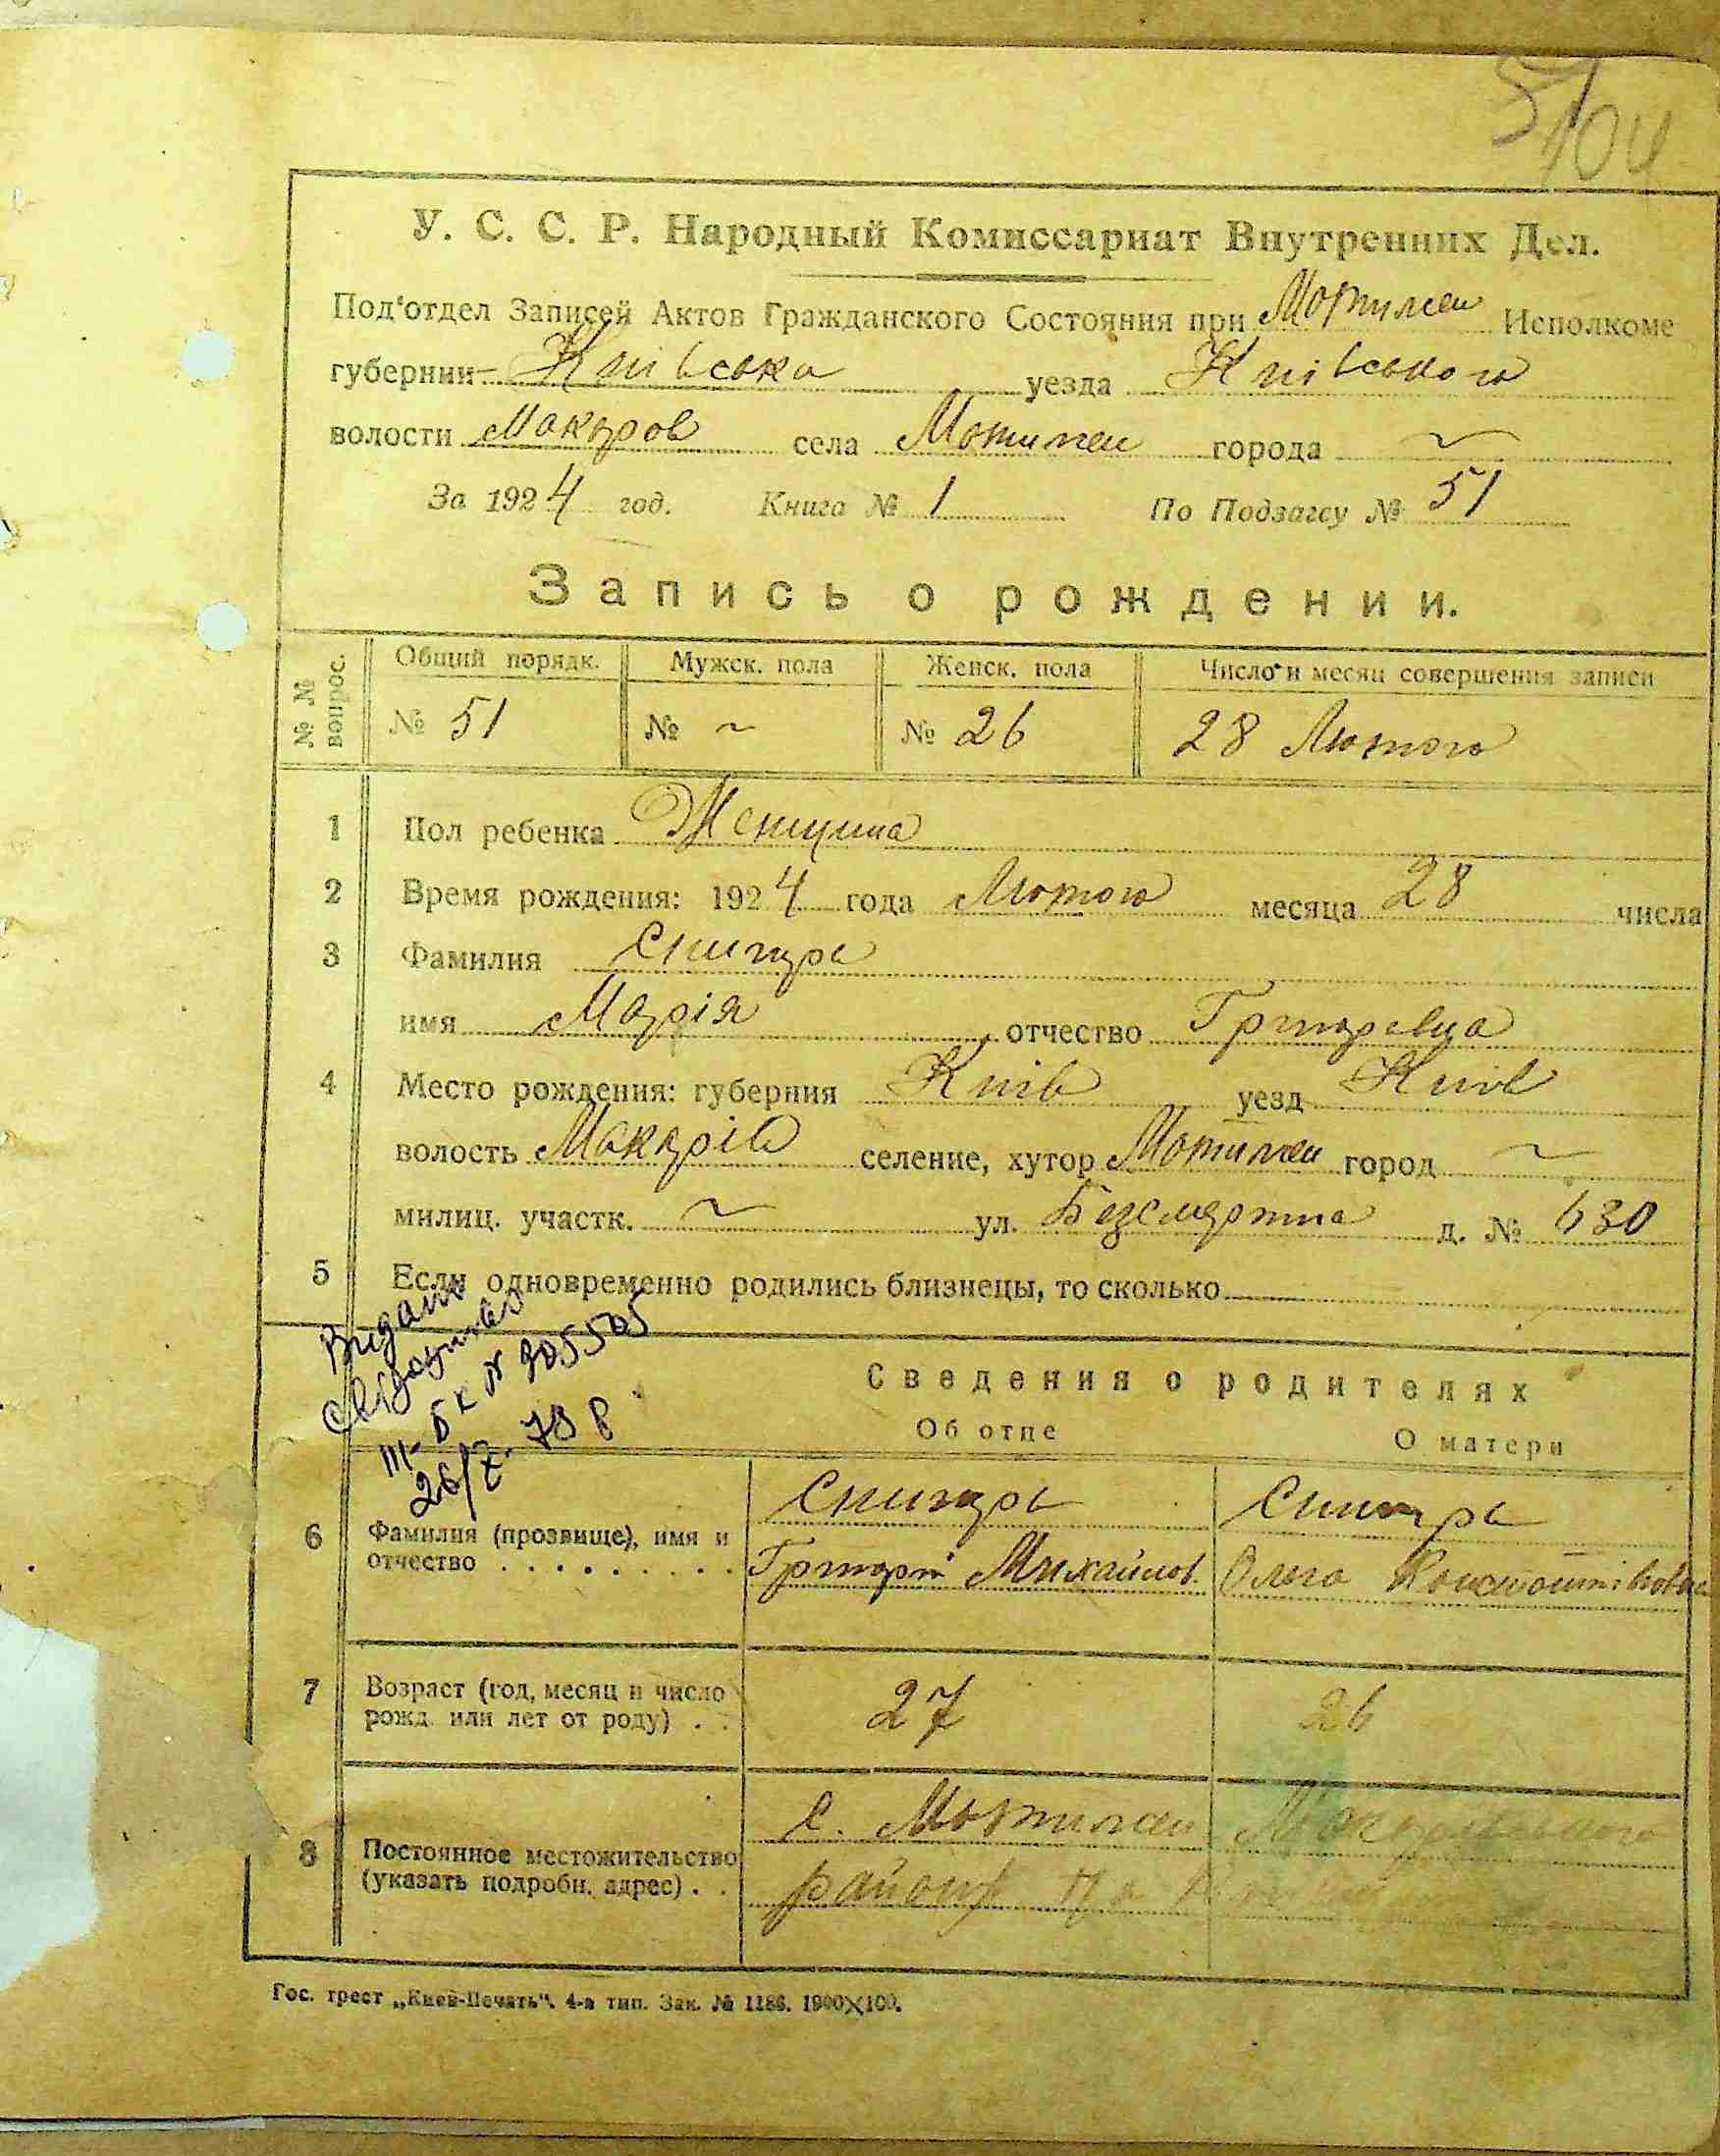 51
104
У. С. С. Р. Народный Комиссариат Внутренних Дел.
Под'отдел Записей Актов Гражданского Состояния при Мотижен Исполкоме
губернии Київська уезда Київського
волости Макаров села Мотижен города ~
За 1924 год. Книга № 1 По Подзагсу № 51
Запись о рождении.
№ № вопрос. Общий порядк. Мужск. пола Женск. пола Число и месяц совершения записи
№ 51 № ~ № 26 28 Лютого
1 Пол ребенка Женщина
2 Время рождения: 1924 года Лютого месяца 28 числа
3 Фамилия
имя Марія отчество Григоревна
4 Место рождения: губерния Київ уезд Київ
волость Макарів селение, хутор Мотижен город ~
милиц. участк. ~ ул. Безсмертна д. № 630
5 Если одновременно родились близнецы, то сколько
Видано
свідоцтво
III-БК № 205505
26/X. 78 р
Сведения о родителях
Об отце О матери
6 Фамилия (прозвище), имя и
отчество . . . . . . . . . Григорій Михайлов. Ольга Константіновна
7 Возраст (год, месяц и число
рожд. или лет от роду) . . 27 26
с. Мотижен Макарівського
8 Постоянное местожительство
(указать подробн. адрес) . . району
Гос. трест „Киев-Печать". 4-я тип. Зак. № 1186. 1900×100.